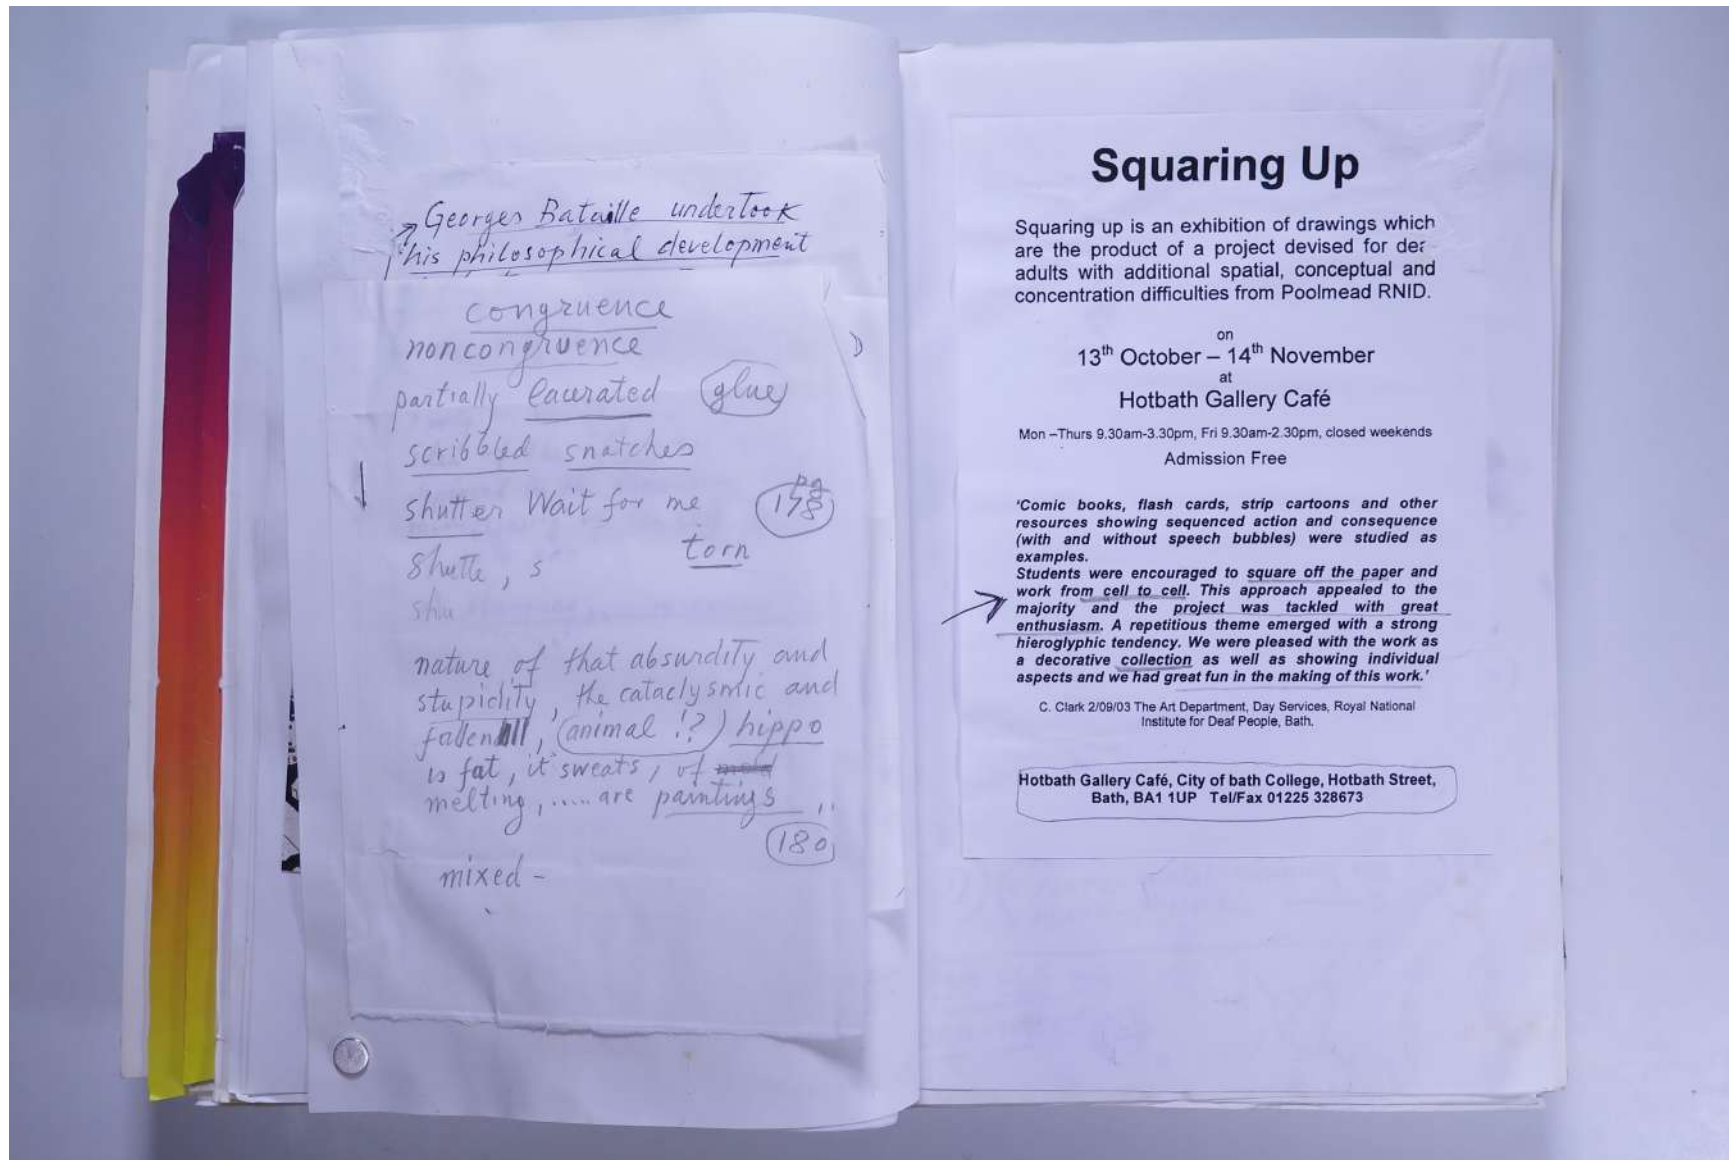 Georges Bataille undertook
his philosophical development
congruence
noncongruence
partially lacerated glue
scribbled snatches
shutter Wait for me pg 178
torn
shutte, s
shu
nature of that absurdity and
stupidity, the cataclysmic and
fallen, (animal !?) hippo
is fat, it sweats, of
melting, ..... are paintings ..
180
mixed -
Squaring Up
Squaring up is an exhibition of drawings which
are the product of a project devised for dea
adults with additional spatial, conceptual and
concentration difficulties from Poolmead RNID.
on
13th October – 14th November
at
Hotbath Gallery Café
Mon –Thurs 9.30am-3.30pm, Fri 9.30am-2.30pm, closed weekends
Admission Free
'Comic books, flash cards, strip cartoons and other
resources showing sequenced action and consequence
(with and without speech bubbles) were studied as
examples.
Students were encouraged to square off the paper and
work from cell to cell. This approach appealed to the
majority and the project was tackled with great
enthusiasm. A repetitious theme emerged with a strong
hieroglyphic tendency. We were pleased with the work as
a decorative collection as well as showing individual
aspects and we had great fun in the making of this work.'
C. Clark 2/09/03 The Art Department, Day Services, Royal National
Institute for Deaf People, Bath.
Hotbath Gallery Café, City of bath College, Hotbath Street,
Bath, BA1 1UP Tel/Fax 01225 328673